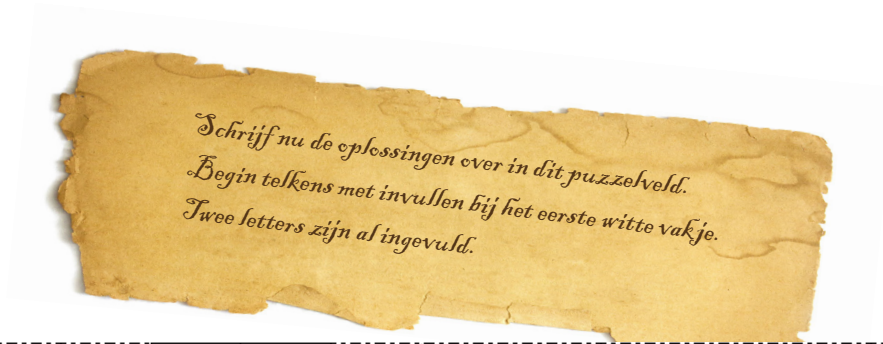 Schrijf nu de oplossingen over in dit puzzelveld.
Begin telkens met invullen bij het eerste witte vakje.
Twee letters zijn al ingevuld.